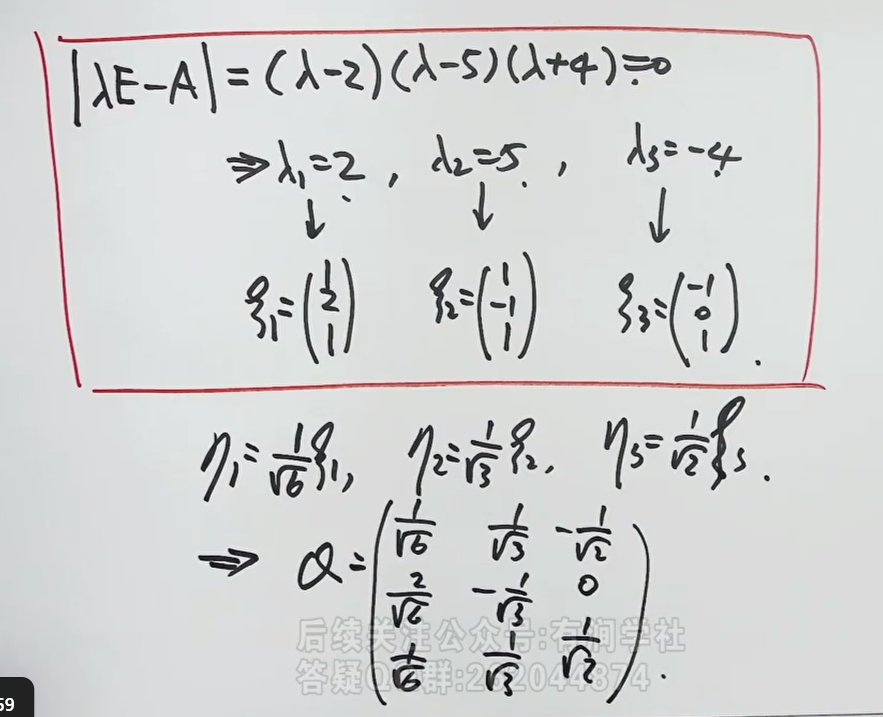 |λE-A|=(λ-2)(λ-5)(λ+4)=0
⇒λ₁=2, λ₂=5, λ₃=-4
↓ ↓ ↓
ξ₁=(1 2 1) ξ₂=(1 -1 1) ξ₃=(-1 0 1).
η₁=1/√6 ξ₁, η₂=1/√3 ξ₂, η₃=1/√2 ξ₃.
⇒ Q=(1/√6 1/√3 -1/√2
2/√6 -1/√3 0
1/√6 1/√3 1/√2).
后续关注公众号:有间学社
答疑Q群:262044874
59